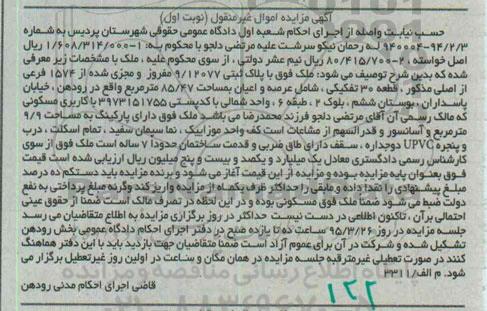 آگهی مزایده اموال غیرمنقول (نوبت اول)
حسب نیابت واصله از اجرای احکام شعبه اول دادگاه عمومی حقوقی شهرستان پردیس به شماره
۹۴۰۰۰۴-۹۴/۲/۳ لـه رحمان نیکو سرشت علیه مرتضی دلجو با محکوم به: ۱-۱/۶۰۸/۳۱۴/۰۰۰ ریال
اصل خواسته ، ۲-۸۰/۴۱۵/۷۰۰ ریال نیم عشر دولتی ، از سوی محکوم علیه ، ملک با مشخصات زیر معرفی
شده که بدین شرح توصیف می شود: ملک فوق با پلاک ثبتی ۹/۱۲۰۷۷ مفروز و مجزی شده از ۱۵۷۴ فرعی
از اصلی مذکور ، قطعه ۳۰ تفکیکی ، شامل عرصه و اعیان بمساحت ۸۵/۴۷ مترمربع واقع در رودهن ، خیابان
پاسداران ، بوستان ششم ، بلوک ۲ ، طبقه ۶ ، واحد شمالی با کدپستی ۳۹۷۳۱۵۱۷۵۵ با کاربری مسکونی
که مالک رسمی آن آقای مرتضی دلجو فرزند محمدرضا می باشد. ملک فوق دارای پارکینگ به مساحت ۹/۹
مترمربع و آسانسور و قدرالسهم از مشاعات است کف واحد موزاییک ، نما سیمان سفید ، تمام اسکلت ، درب
و پنجره UPVC دوجداره ، سقف دارای طاق ضربی و قدمت ساختمان حدوداً ۷ ساله است ملک فوق از سوی
کارشناس رسمی دادگستری معادل یک میلیارد و یکصد و بیست و پنج میلیون ریال ارزیابی شده است قیمت
فوق بعنوان پایه مزایده بوده و مزایده از این قیمت آغاز می شود و برنده مزایده باید دستکم ده درصد
مبلغ پیشنهادی را نقدا داده و مابقی را حداکثر ظرف یکماه از مزایده واریز کند وگرنه مبلغ پرداختی به نفع
دولت ضبط می شود ضمناً ملک فوق مسکونی بوده و در این لحظه در تصرف مالک است ضمنا از حقوق عینی
احتمالی برآن ، تاکنون اطلاعی در دست نیست حداکثر در روز برگزاری مزایده به اطلاع متقاضیان می رسد
جلسه مزایده در روز ۹۵/۳/۲۶ ساعت ده تا یازده صبح در دفتر اجرای احکام دادگاه عمومی بخش رودهن
تشکیل شده و شرکت در آن برای عموم آزاد است ضمنا متقاضیان جهت بازدید باید با این دفتر هماهنگ
کنند در صورت تعطیلی غیرمترقبه جلسه مزایده در همان مکان و ساعت در اولین روز غیرتعطیل برگزار می
شود. م الف/۳۳۱۱
قاضی اجرای احکام مدنی رودهن
۱۲۲